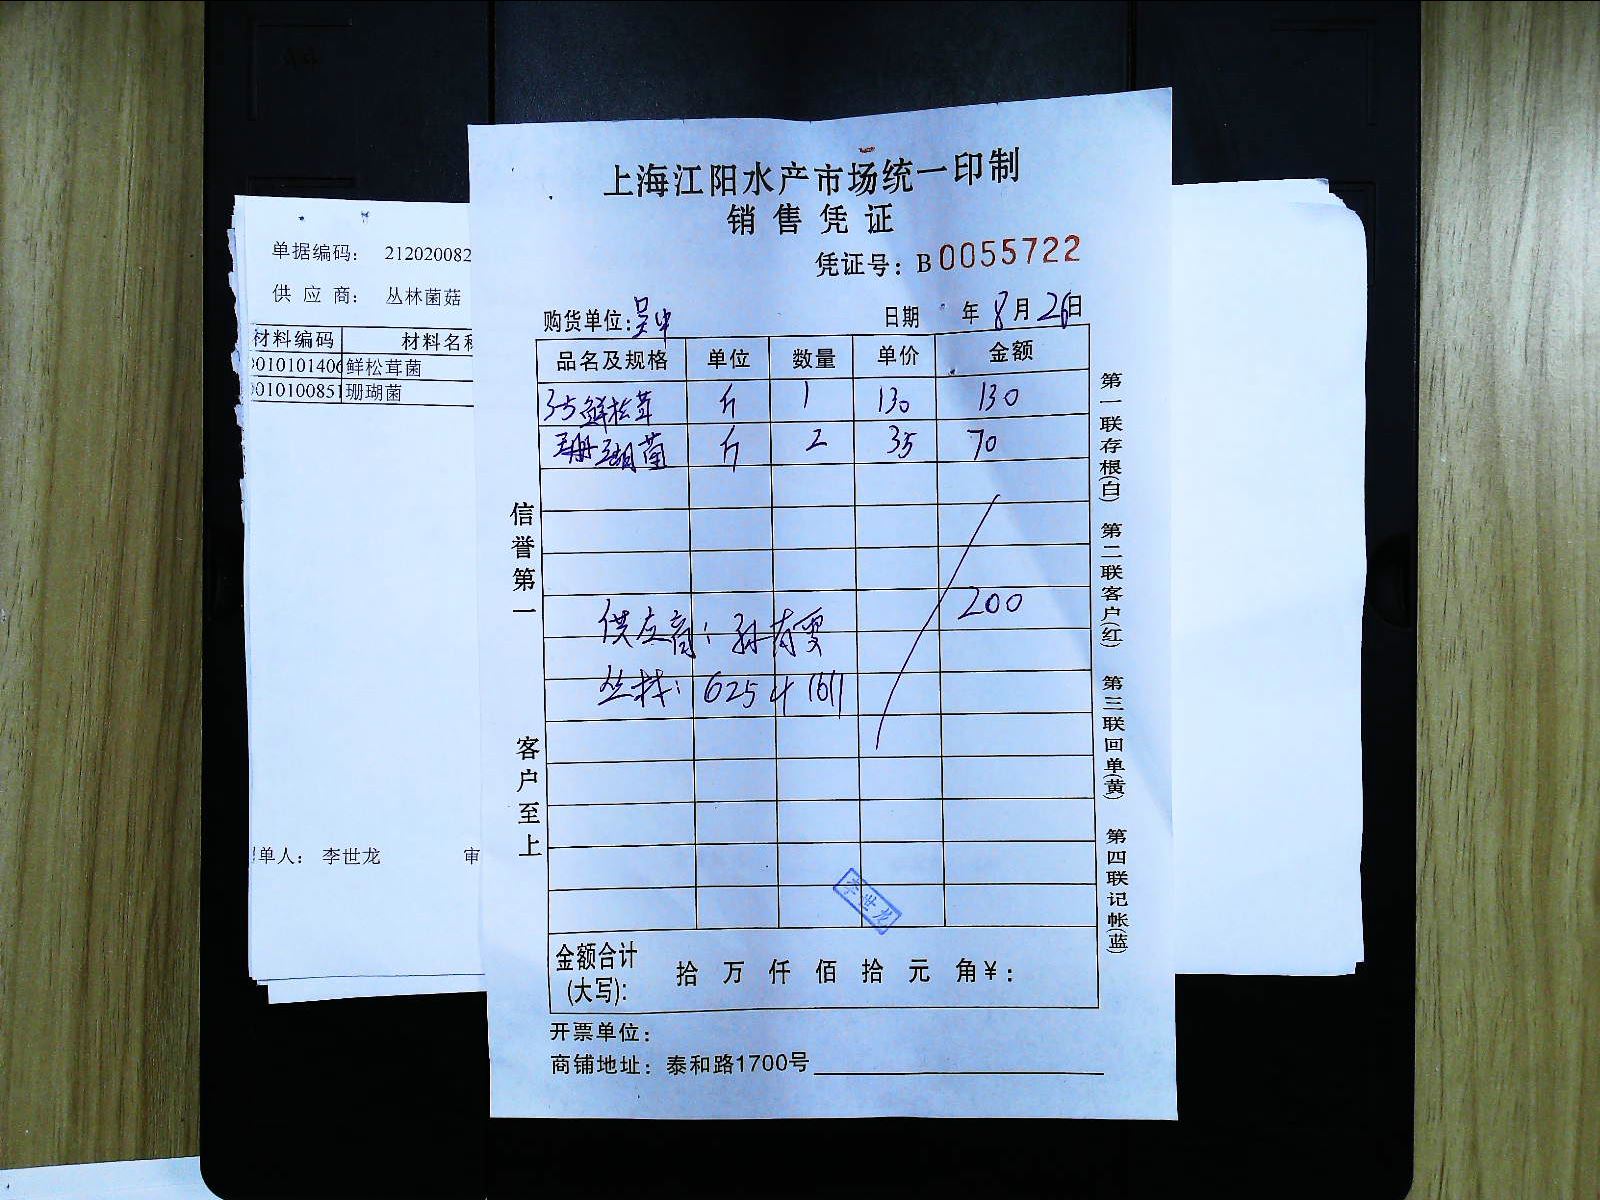 上海江阳水产市场统一印制
销售凭证
凭证号：B0055722
购货单位：吴中 日期 年 8月26日
品名及规格 单位 数量 单价 金额
35鲜松茸 斤 1 130 130
珊瑚菌 斤 2 35 70
200
供应商：孙有雯
丛林：625
金额合计(大写)： 拾 万 仟 佰 拾 元 角 ¥：
开票单位：
商铺地址：泰和路1700号
信誉第一
客户至上
第一联存根(白) 第二联客户(红) 第三联回单(黄) 第四联记帐(蓝)
李世龙
单据编码： 212020082
供应商： 丛林菌菇
材料编码 材料名称
鲜松茸菌
珊瑚菌
单人： 李世龙 审